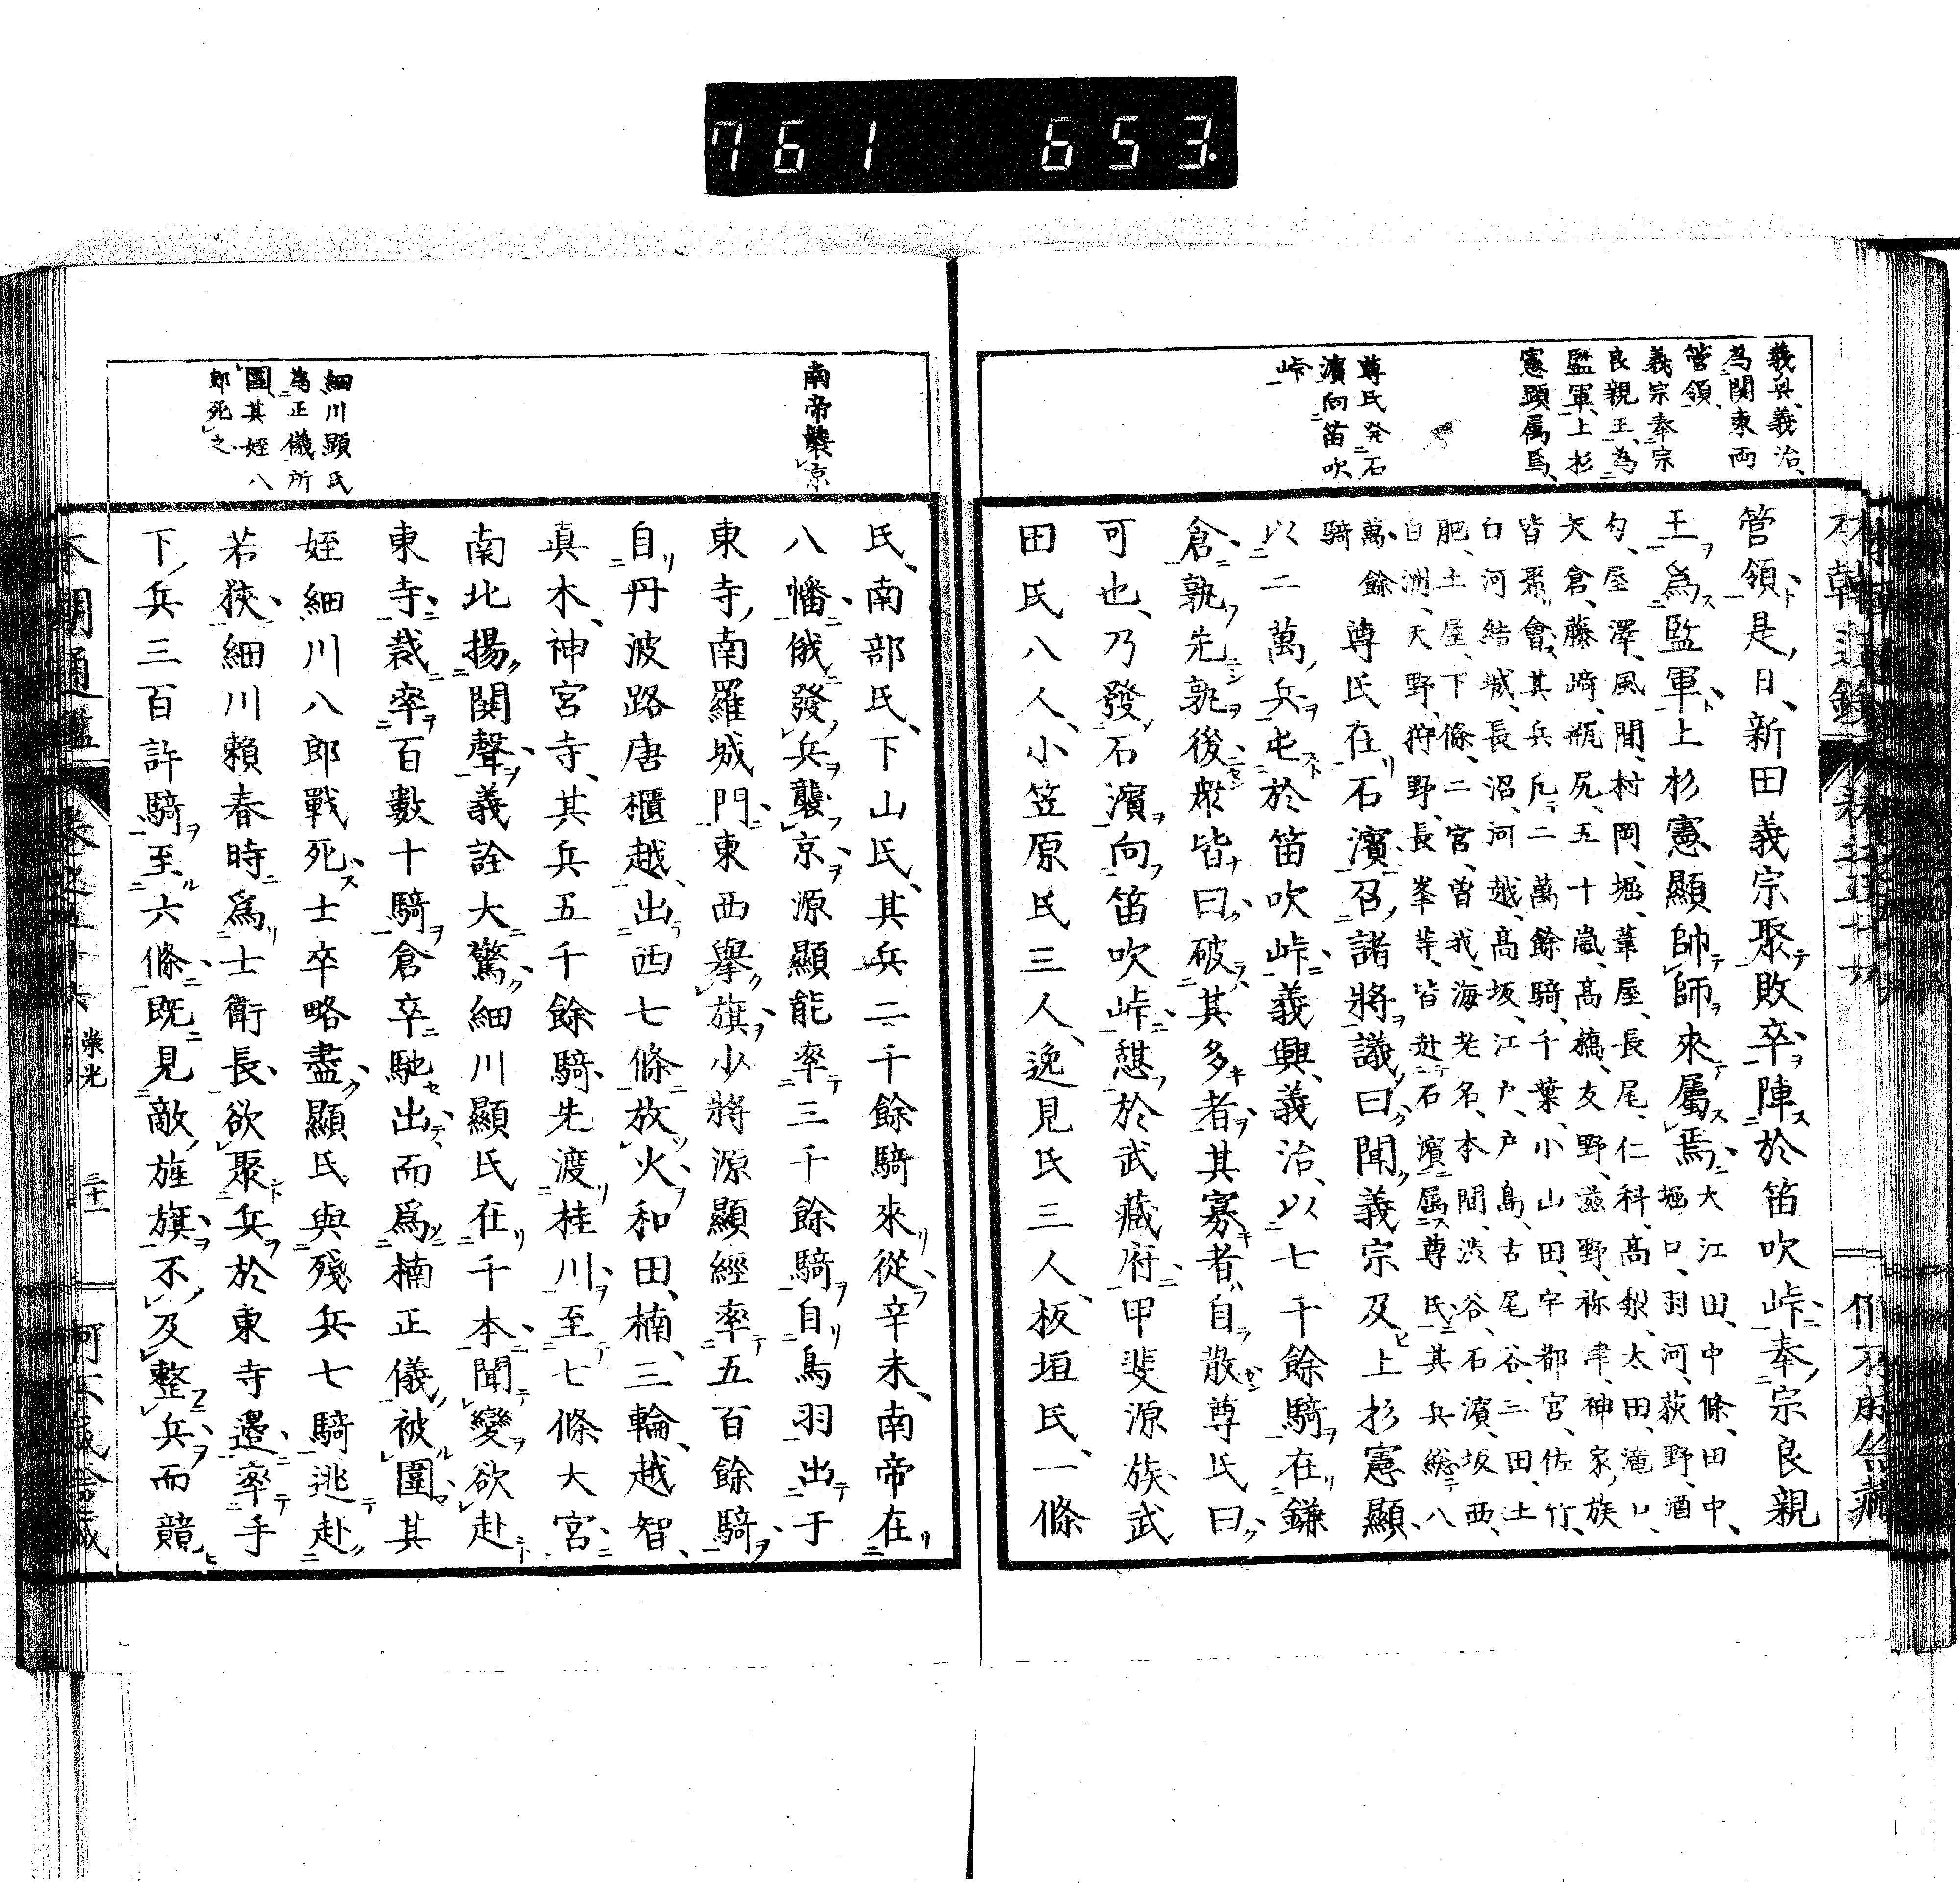 761 653
義興、義治、
為関東両
管領、
義宗奉宗
良親王、為
監軍、上杉
憲顕属焉、
尊氏発石
濱向笛吹
峠
管領是日、新田義宗聚敗卒陣於笛吹峠奉宗良親
王為監軍上杉憲顯帥師來屬焉
大江田、中條、田中、
堀口、羽河、荻野、酒
勾、屋澤、風間、村岡、堀、葦屋、長尾、仁科、髙梨、太田、滝口、
矢倉、藤﨑、瓶尻、五十嵐、髙橋、友野、滋野、祢津、神家族
皆聚會、其兵凡二萬餘騎、千葉、小山田、宇都宮、佐竹、
白河結城、長沼、河越、髙坂、江戸、戸島、古尾谷、三田、土
肥、土屋、下條、二宮、曽我、海老名、本間、渋谷、石濱、坂西、
白洲、天野、狩野、長峯等、皆赴石濱属尊氏其兵総八
萬餘
騎
尊氏在石濱召諸將議曰聞義宗及上杉憲顯
以二萬兵屯於笛吹峠義興、義治、以七千餘騎在鎌
倉孰先孰後衆皆曰破其多者其寡者自散尊氏曰
可也、乃發石濱向笛吹峠憇於武藏府甲斐源族武
田氏八人、小笠原氏三人、逸見氏三人、板垣氏、一條
南帝襲京
細川顕氏
為正儀所
圍、其姪八
郎死之
氏、南部氏、下山氏、其兵二千餘騎來從辛未、南帝在
八幡俄發兵襲京源顯能率三千餘騎自鳥羽出于
東寺南羅城門東西擧旗少將源顯經率五百餘騎
自丹波路唐櫃越出西七條放火和田、楠、三輪、越智、
真木、神宮寺、其兵五千餘騎先渡桂川至七條大宮
南北揚鬨聲義詮大驚細川顯氏在千本聞變欲赴
東寺裁率百數十騎倉卒馳出而爲楠正儀被圍其
姪細川八郎戰死士卒略盡顯氏與殘兵七騎逃赴
若狹細川賴春時爲士衛長欲聚兵於東寺邉率手
下兵三百許騎至六條既見敵旌旗不及整兵而競
本朝通鑑
崇光
三十一